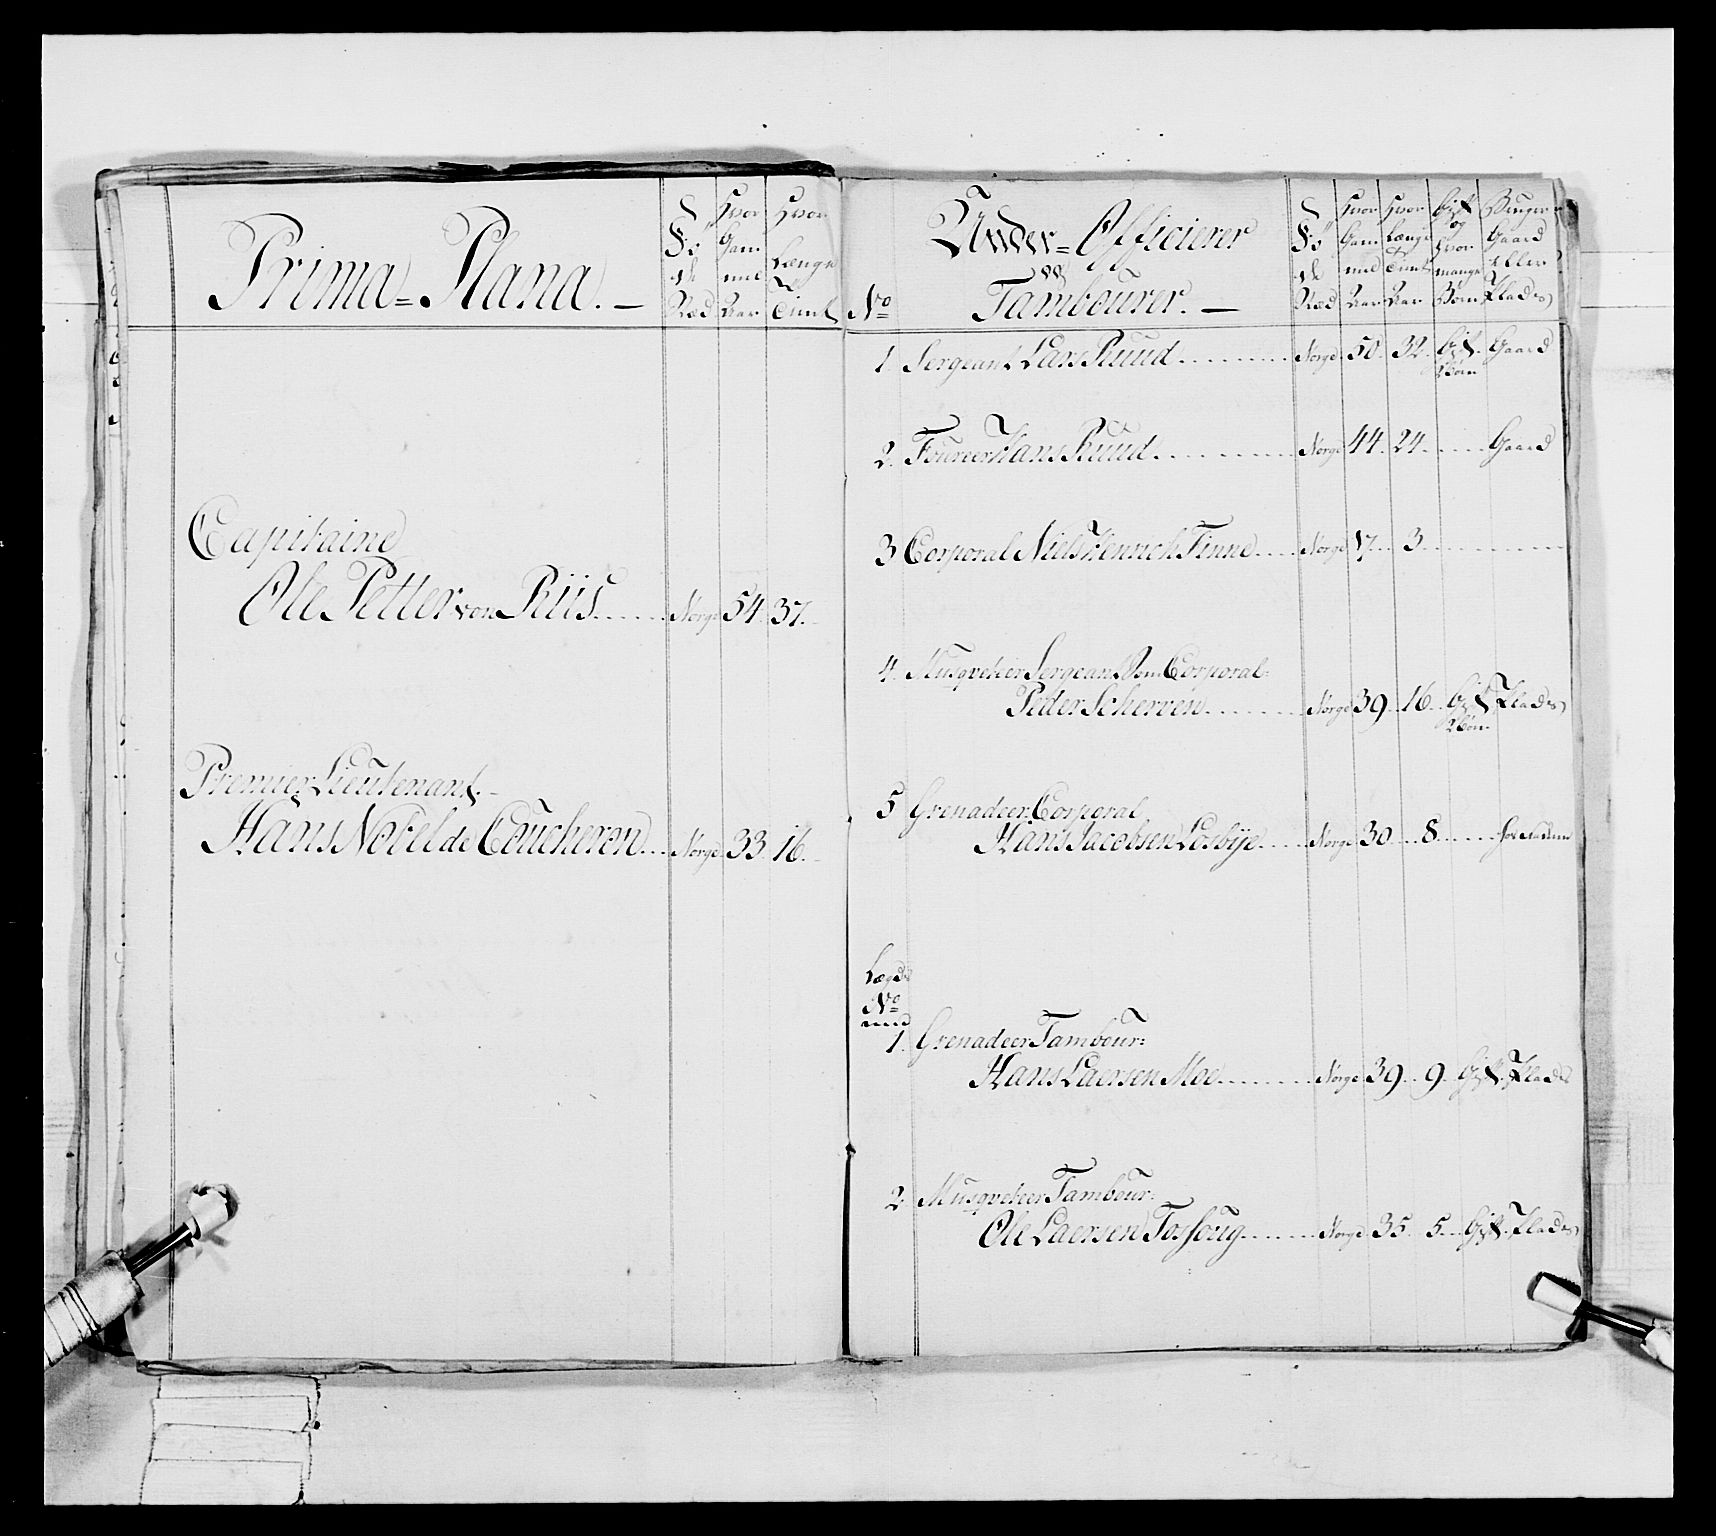 Prima-Plana.
Fø
de
Stæd
Hvor
Gam
mel
Aar
Hvor
Længe
Tient
Capitaine
Ole Petter von Riis Norge 54. 37.
Premier Lieutenant
Hans Nobel de Coucheron Norge 33. 16.
Under-Officierer
og
Tambourer.
No
Fø
de
Stæd
Hvor
Gam
mel
Aar
Hvor
Længe
Tient
Aar
Gift
og
hvor
mange
Børn
Bruger
Gaard
Eller
Plads
1. Sergeant Lars Ruud Norge 50. 32. Gift. Gaard
Børn
2. Foureer Hans Ruud Norge 44. 24. Gaard
3 Corporal Niels Henrich Finne Norge 17. 3
4. Musqveteer Sergeant Som Corporal
Peder Scherven Norge 39. 16. Gift Plads
Børn
5 Grenadeer Corporal
Hans Jacobsen Losbye Norge 30. 8.
Lægds
No
1. Grenadeer Tambour:
Hans Laersen Moe Norge 39. 9. Gift. Plads
2. Musqveteer Tambour:
Ole Laersen Fosfoug Norge 35. 5. Gift. Plads